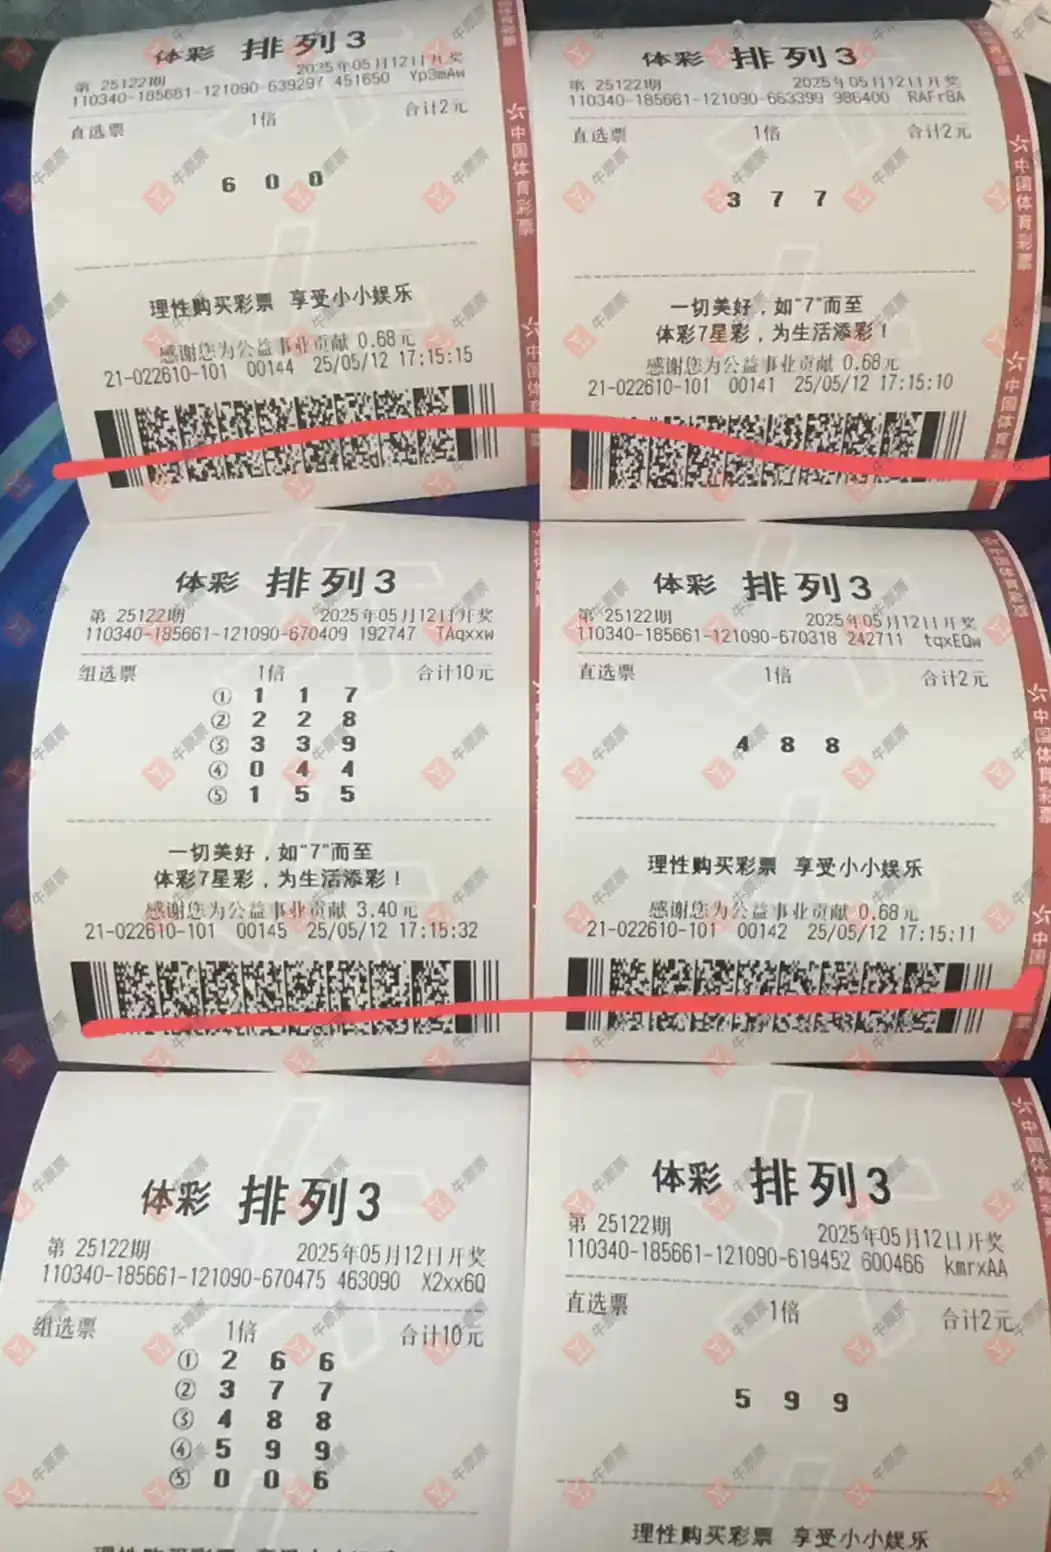 体彩 排列3
第 25122期 2025年05月12日开奖
110340-185661-121090-639297 451650 Yp3mAw
直选票 1倍 合计2元
6 0 0
理性购买彩票 享受小小娱乐
感谢您为公益事业贡献 0.68元
21-022610-101 00144 25/05/12 17:15:15
中国体育彩票
体彩 排列3
第 25122期 2025年05月12日开奖
110340-185661-121090-663399 986400 RAFr8A
直选票 1倍 合计2元
3 7 7
一切美好，如“7”而至
体彩7星彩，为生活添彩！
感谢您为公益事业贡献 0.68元
21-022610-101 00141 25/05/12 17:15:10
中国体育彩票
中国体育
体彩 排列3
第 25122期 2025年05月12日开奖
110340-185661-121090-670409 192747 TAqxxw
组选票 1倍 合计10元
① 1 1 7
② 2 2 8
③ 3 3 9
④ 0 4 4
⑤ 1 5 5
一切美好，如“7”而至
体彩7星彩，为生活添彩！
感谢您为公益事业贡献 3.40元
21-022610-101 00145 25/05/12 17:15:32
体彩 排列3
第 25122期 2025年05月12日开奖
110340-185661-121090-670318 242711 tqxEQw
直选票 1倍 合计2元
4 8 8
理性购买彩票 享受小小娱乐
感谢您为公益事业贡献 0.68元
21-022610-101 00142 25/05/12 17:15:11
中国体育彩票
中国
体彩 排列3
第 25122期 2025年05月12日开奖
110340-185661-121090-670475 463090 X2xx6Q
组选票 1倍 合计10元
① 2 6 6
② 3 7 7
③ 4 8 8
④ 5 9 9
⑤ 0 0 6
体彩 排列3
第 25122期 2025年05月12日开奖
110340-185661-121090-619452 600466 kmrxAA
直选票 1倍 合计2元
5 9 9
理性购买彩票 享受小小娱乐
中国体育彩票
牛票票